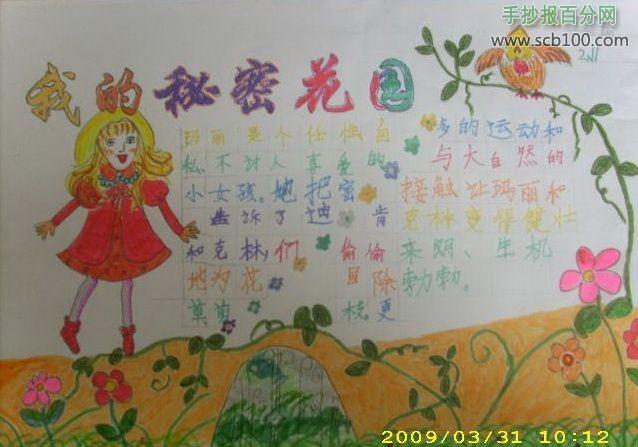 手抄报百分网
www.scb100.com
我的秘密花园
玛丽是个任性自
私、不讨人喜爱的
小女孩。她把密
告诉了迪 肯
和克林,们 偷偷
地为花 除
草剪 枝,更
多的运动和
与大自然的
接触让玛丽和
克林变得健壮
聪明、生机
勃勃。
2009/03/31 10:12